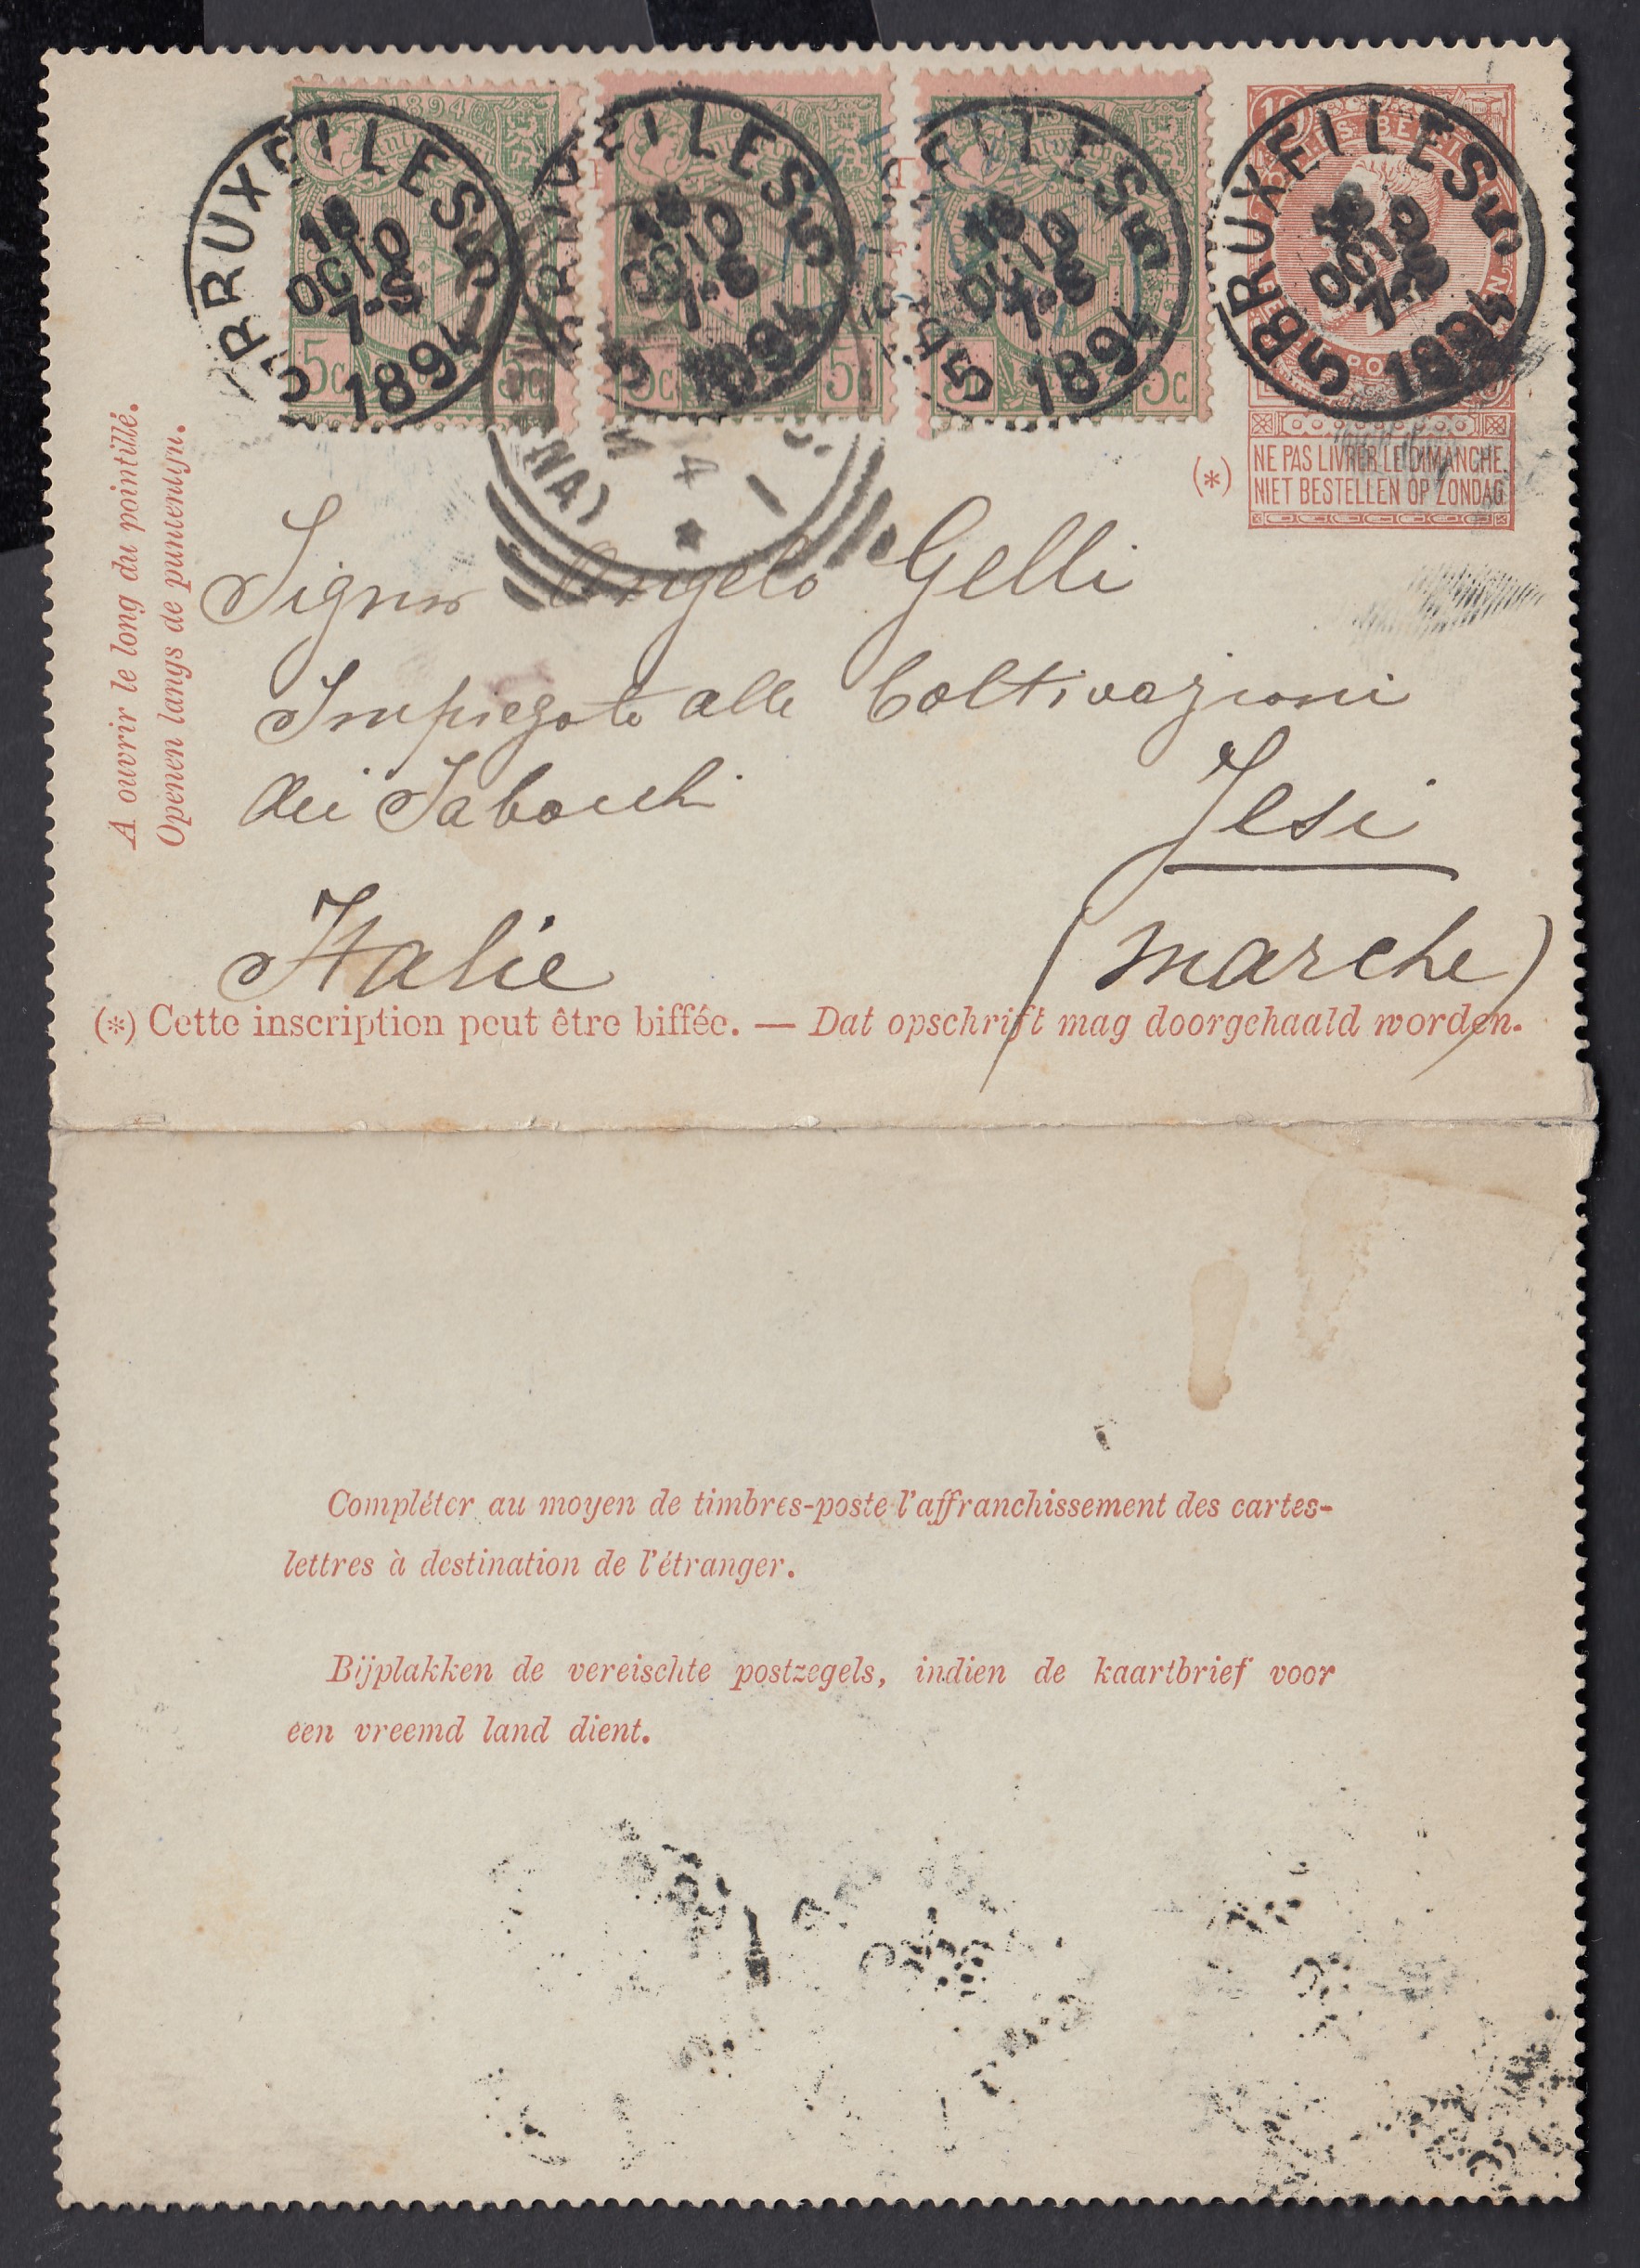 1894
5c 5c
5c 5c
5c 5c
BRUXELLES 5
18
OCTO
7-S
1894
5
BRUXELLES 5
18
OCTO
7-S
1894
BRUXELLES 5
18
OCTO
7-S
1894
5
BRUXELLES 5
18
OCTO
7-S
1894
5
10
(*)
NE PAS LIVRER LE DIMANCHE.
NIET BESTELLEN OP ZONDAG
NA)
A ouvrir le long du pointillé.
Openen langs de puntenlijn.
Signor Angelo Gelli
Impiegato alle Coltivazioni
dei Tabacchi
Jesi
Italie
(Marche)
(*) Cette inscription peut être biffée. — Dat opschrift mag doorgehaald worden.
Compléter au moyen de timbres-poste l'affranchissement des cartes-
lettres à destination de l'étranger.
Bijplakken de vereischte postzegels, indien de kaartbrief voor
een vreemd land dient.